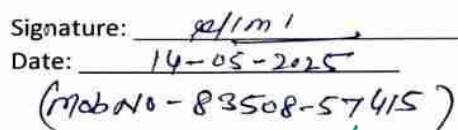 Signature:
Date: 14-05-2025
(Mob No - 83508-57415)